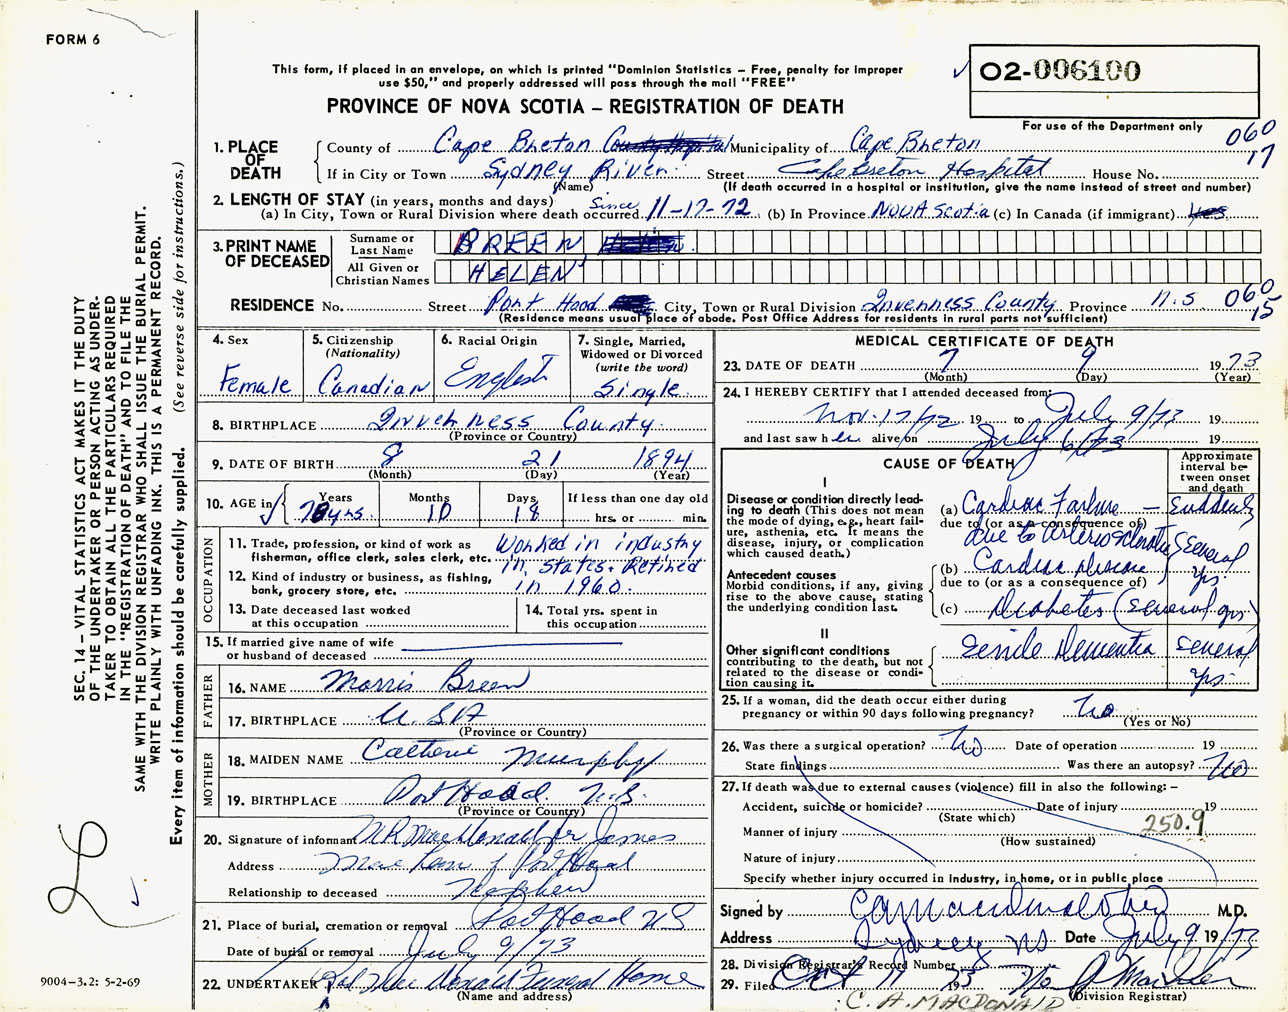 FORM 6
This form, if placed in an envelope, on which is printed "Dominion Statistics – Free, penalty for improper
use $50," and properly addressed will pass through the mail "FREE"
PROVINCE OF NOVA SCOTIA – REGISTRATION OF DEATH
02-006100
For use of the Department only
060
17
1. PLACE OF DEATH
County of Cape Breton Municipality of Cape Breton
If in City or Town Sydney River Street Cape Breton Hospital House No.
(Name) (If death occurred in a hospital or institution, give the name instead of street and number)
2. LENGTH OF STAY (in years, months and days)
(a) In City, Town or Rural Division where death occurred Since 11-17-72 (b) In Province Nova Scotia (c) In Canada (if immigrant)
3. PRINT NAME OF DECEASED
Surname or Last Name BREEN
All Given or Christian Names HELEN
RESIDENCE No. Street Port Hood City, Town or Rural Division Inverness County Province N.S 060
15
(Residence means usual place of abode. Post Office Address for residents in rural parts not sufficient)
4. Sex Female
5. Citizenship (Nationality) Canadian
6. Racial Origin English
7. Single, Married, Widowed or Divorced (write the word) Single
8. BIRTHPLACE Inverness County
(Province or Country)
9. DATE OF BIRTH 8 21 1894
(Month) (Day) (Year)
10. AGE in Years Months Days If less than one day old
78 yrs. 10 18 hrs. or min.
OCCUPATION
11. Trade, profession, or kind of work as fisherman, office clerk, sales clerk, etc. Worked in industry
12. Kind of industry or business, as fishing, bank, grocery store, etc. in States. Retired in 1960.
13. Date deceased last worked at this occupation
14. Total yrs. spent in this occupation
15. If married give name of wife or husband of deceased
FATHER
16. NAME Morris Breen
17. BIRTHPLACE U.S.A
(Province or Country)
MOTHER
18. MAIDEN NAME Catherine Murphy
19. BIRTHPLACE Port Hood. N.S.
(Province or Country)
20. Signature of informant MacDonald for James
Address MacLean of Port Hood
Relationship to deceased Nephew
21. Place of burial, cremation or removal Port Hood NS
Date of burial or removal July 9/73
22. UNDERTAKER MacDonald Funeral Home
(Name and address)
MEDICAL CERTIFICATE OF DEATH
23. DATE OF DEATH 7 9 1973
(Month) (Day) (Year)
24. I HEREBY CERTIFY that I attended deceased from:
Nov. 17/72 19 to July 9/73 19
and last saw her alive on July 6/73 19
CAUSE OF DEATH
Approximate interval between onset and death
I
Disease or condition directly leading to death (This does not mean the mode of dying, e.g., heart failure, asthenia, etc. It means the disease, injury, or complication which caused death.)
(a) Cardiac Failure – Suddenly
due to (or as a consequence of)
due to arteriosclerotic Several
Antecedent causes
Morbid conditions, if any, giving rise to the above cause, stating the underlying condition last.
(b) Cardiac disease yrs.
due to (or as a consequence of)
(c) Diabetes (Several yrs)
II
Other significant conditions contributing to the death, but not related to the disease or condition causing it.
Senile Dementia Several yrs.
25. If a woman, did the death occur either during pregnancy or within 90 days following pregnancy? No
(Yes or No)
26. Was there a surgical operation? No Date of operation 19
State findings Was there an autopsy? No
27. If death was due to external causes (violence) fill in also the following: –
Accident, suicide or homicide? Date of injury 19
(State which)
250.9
Manner of injury
(How sustained)
Nature of injury
Specify whether injury occurred in industry, in home, or in public place
Signed by M.D.
Address Sydney NS Date July 9 1973
28. Division Registrar's Record Number
29. Filed Oct 11 1973
(Division Registrar)
C. A. MACDONALD
SEC. 14 – VITAL STATISTICS ACT MAKES IT THE DUTY
OF THE UNDERTAKER OR PERSON ACTING AS UNDER-
TAKER TO OBTAIN ALL THE PARTICULARS REQUIRED
IN THE "REGISTRATION OF DEATH" AND TO FILE THE
SAME WITH THE DIVISION REGISTRAR WHO SHALL ISSUE THE BURIAL PERMIT.
WRITE PLAINLY WITH UNFADING INK. THIS IS A PERMANENT RECORD.
Every item of information should be carefully supplied. (See reverse side for instructions.)
9004-3.2: 5-2-69